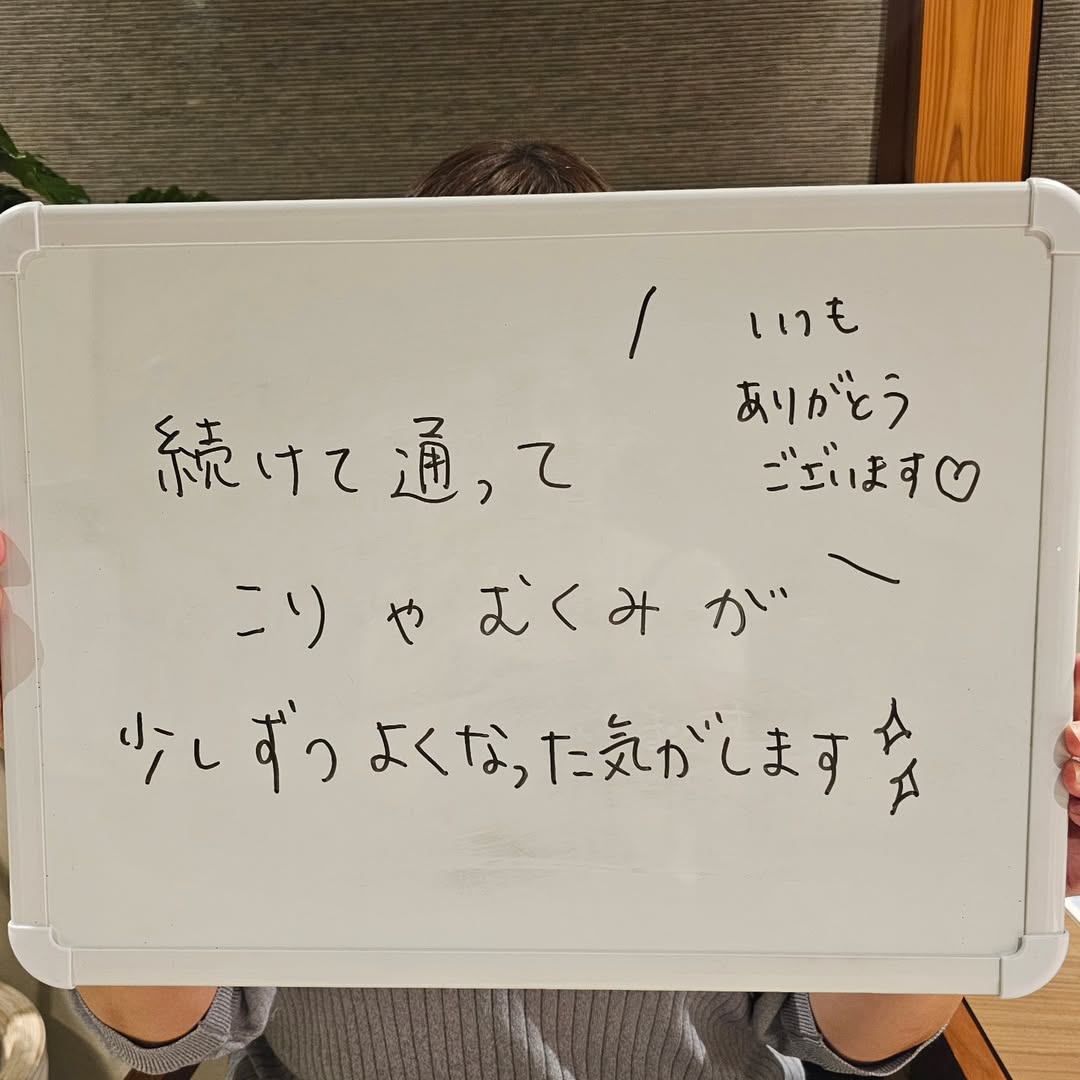 続けて通って
こりやむくみが
少しずつよくなった気がします
いつも
ありがとう
ございます♡